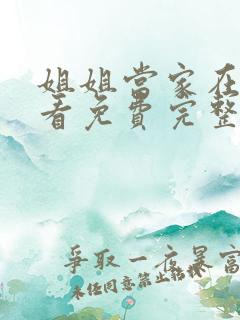 姐姐當家在
看免費完整
爭取一夜暴富
未经同意禁止转载